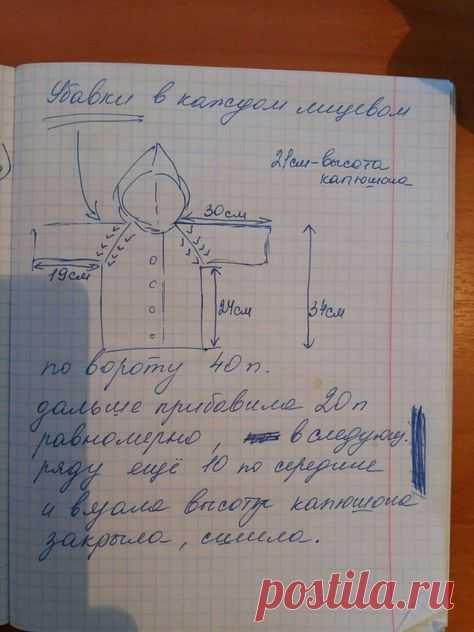 Убавки в каждом лицевом
21см-высота
капюшона
30см
19см
24см
34см
по вороту 40 п.
дальше прибавила 20п
равномерно, в следующ.
ряду ещё 10 по середине
и вязала высоту капюшона
закрыла, сшила.
postila.ru